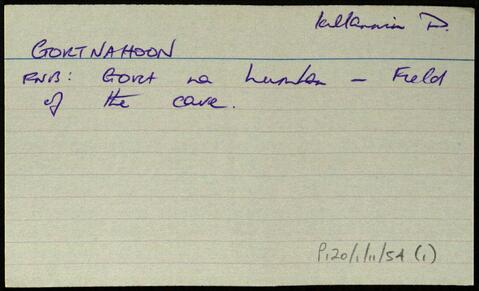 Killannin P.
GORTNAHOON
FNB: GORT na hUamhan - Field
of the cave.
P120/1/11/54 (1)